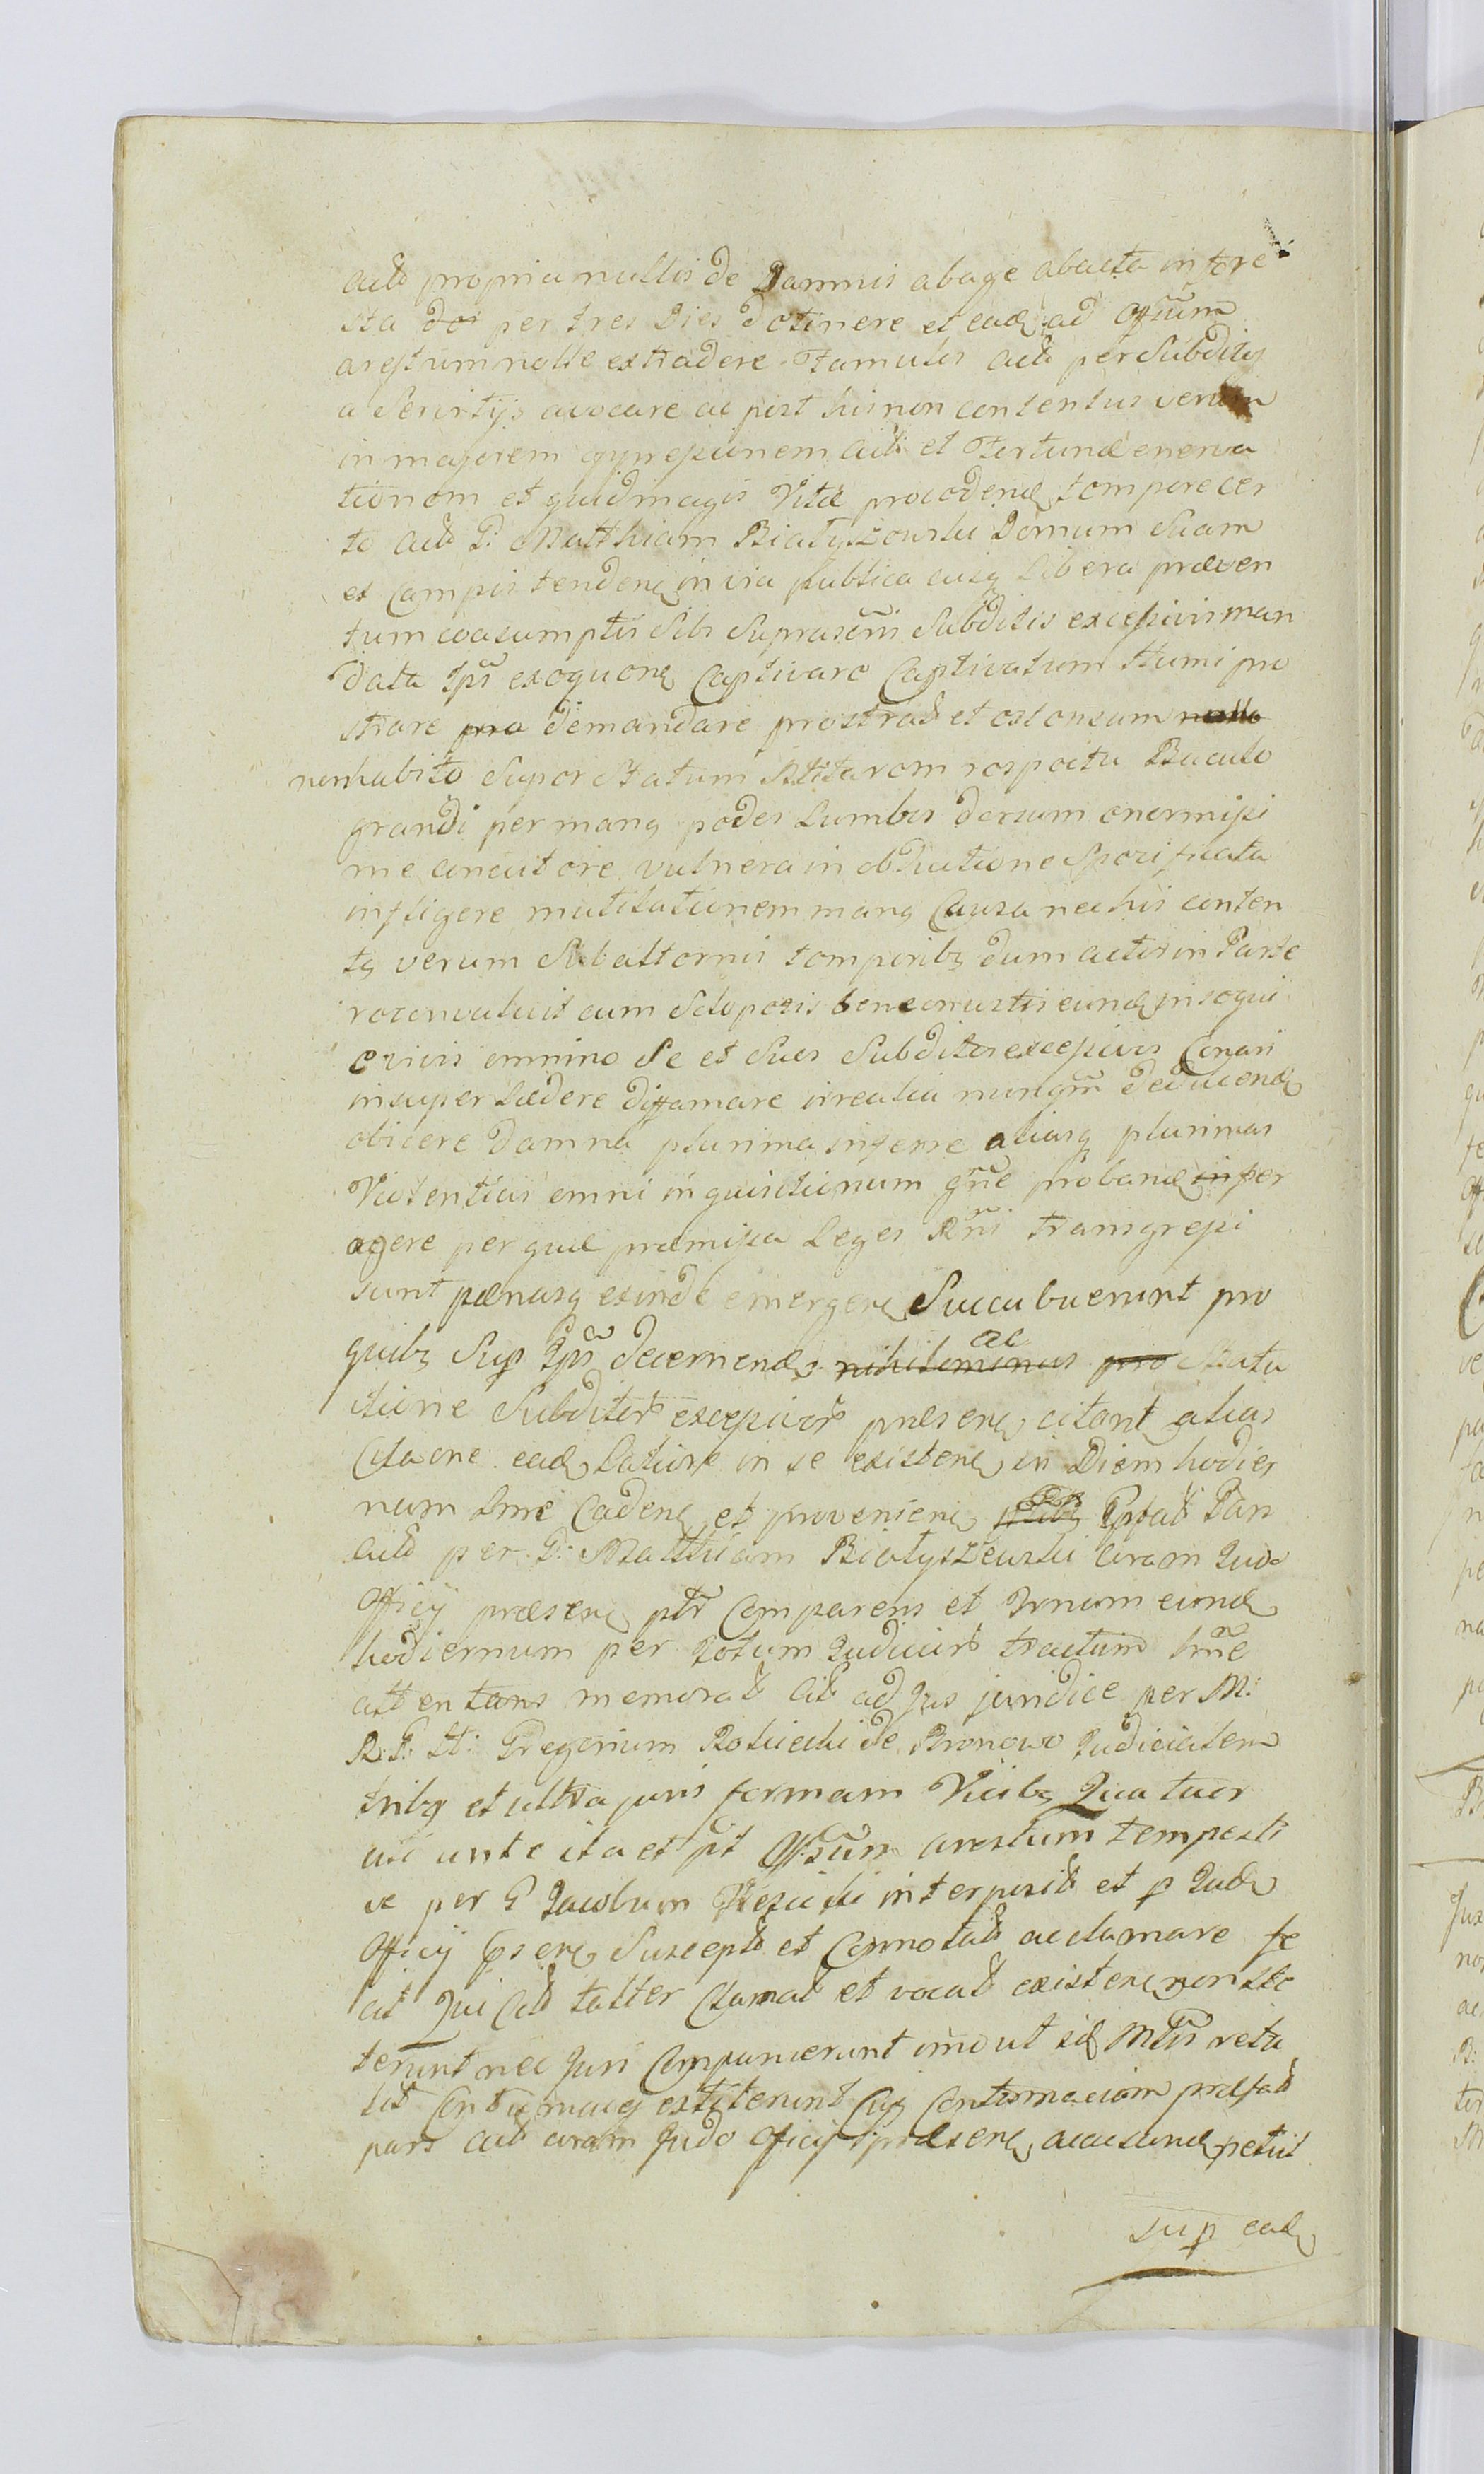 actos propria nullis de Damnis abage abacta in fore
sta per tres Dies detinere et eade ad offium
arestum nolle extradere Famulos act per Subditos
a Servitijs avocare ac post his non contentus verum
in majorem oppressionem acti et Fortunæ enerva
tionem et quidmagis Vitæ procedenę tempore cer
to act G: Matthiam Białyszewski Domum Suam
ex Campis tendenę in via publica eusq Libera præven
tum coasumptis Sibi Suprascrtis Subditis exceptivis man
data Ipsi exequenę Captivare Captivatum Humi pro
strare pro demandare prostrat et extensum nullo
non habito Super Statum Militarem respectu Baculo
grandi per manq pedes Lumbos dorsum enormissi
me concutere vulnera in obductione Specificata
infligere mutilationem manq Causa nec his conten
tq verum Subalternis temporibq dum actor in Parte
reconvaluit cum Sclopetis bene onustis eundę insequi
e vivis omnino Se et Suos Subditos exceptivos Conari
insuper Lædere diffamare irrealia nunqm deducenda
obicere Damna plurima inferre aliasq plurimas
Violentias omni inquisitionum gñe probandę in per
agere per quæ præmissa Leges Rñi transgressi
sunt pœnasq exinde emergenę Succubuerunt pro
quibq Sup Ipsi decernendę nihilominus ac pro Statu
itione Subditor exceptivor præsenę citant alias
Cta one eadę Latiore in se existenę in Diem hodier
num Lme Cadenę et provenienę Pptat Pars
act per G: Matthiam Białyszewski coram Judo
Officij præsenę ptr Comparens et Trnum eundę
hodiernum per Totum Judiciirs tractum Lrñe
attentans memorat Cit ad Jus juridice per M:
R: P: St: Gregorium Rolicchi de Bronowo Judicialem
tribq et ultra juris formam Vicibq Quatuor
uti ante ita et pt Offium arestum tempesti
ve per G Jacobum interposit et p Judo
Officij psenę Suscept et Connotat acclamare fe
cit Qui Cit taliter Clamat et vocat existenę non ste
terunt nec Juri Comparuerunt imo ut idę Mtris retu
lit Contumaceq extiterunt Cujq Contumaciam præfat
pars act coram Judo Officij præsenę accusandę petiit
sup eadę